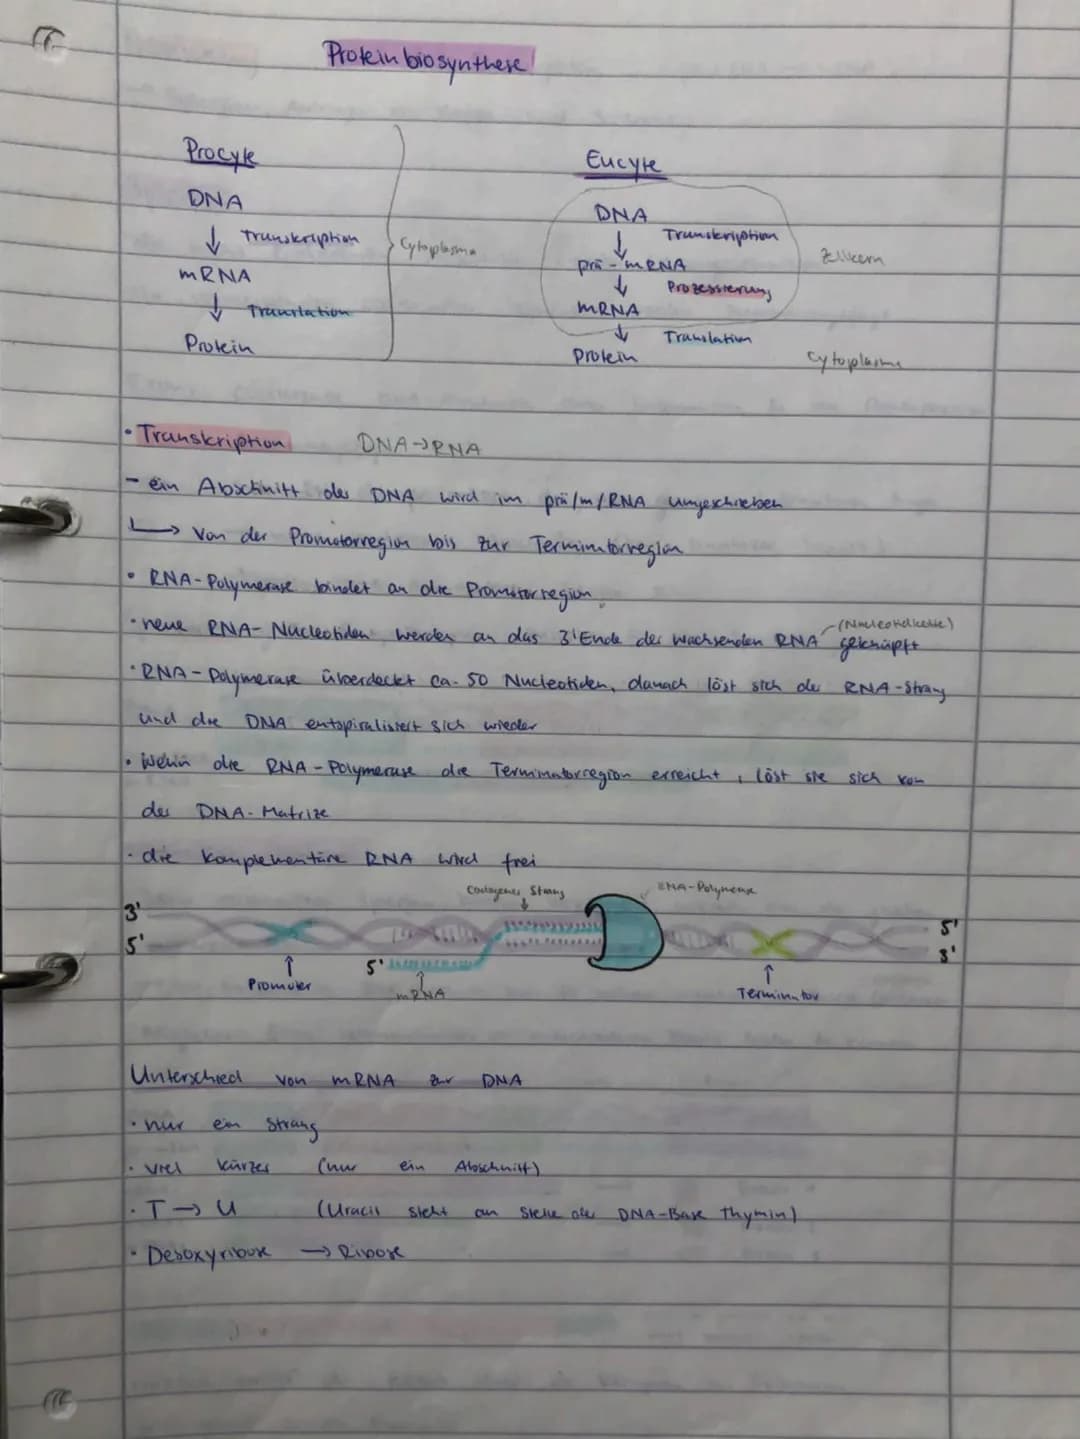 Proteinbiosynthese
Procyte
DNA
↓ Transkription
mRNA
↓ Translation
Protein
Cytoplasma
Eucyte
DNA
↓ Transkription
prä-mRNA
↓ Prozessierung
mRNA
↓ Translation
Protein
Zellkern
Cytoplasma
• Transkription DNA→RNA
- ein Abschnitt der DNA wird im prä/m/RNA umgeschrieben
↳ Von der Promotorregion bis zur Terminatorregion
• RNA-Polymerase bindet an die Promotorregion
(Nucleotidkette)
• neue RNA-Nucleotiden werden an das 3'Ende der wachsenden RNA geknüpft
• RNA-Polymerase überdeckt ca. 50 Nucleotiden, danach löst sich der RNA-Strang
und die DNA entspiralisiert sich wieder
• Wenn die RNA-Polymerase die Terminatorregion erreicht, löst sie sich von
der DNA-Matrize
• die komplementäre RNA wird frei
Codogener Strang
RNA-Polymerase
3' 5'
5' 3'
5'
Promoter
mRNA
Terminator
Unterschied von mRNA zur DNA
• nur ein Strang
• viel kürzer (nur ein Abschnitt)
• T → U (Uracil steht an Stelle der DNA-Base Thymin)
• Desoxyribose → Ribose